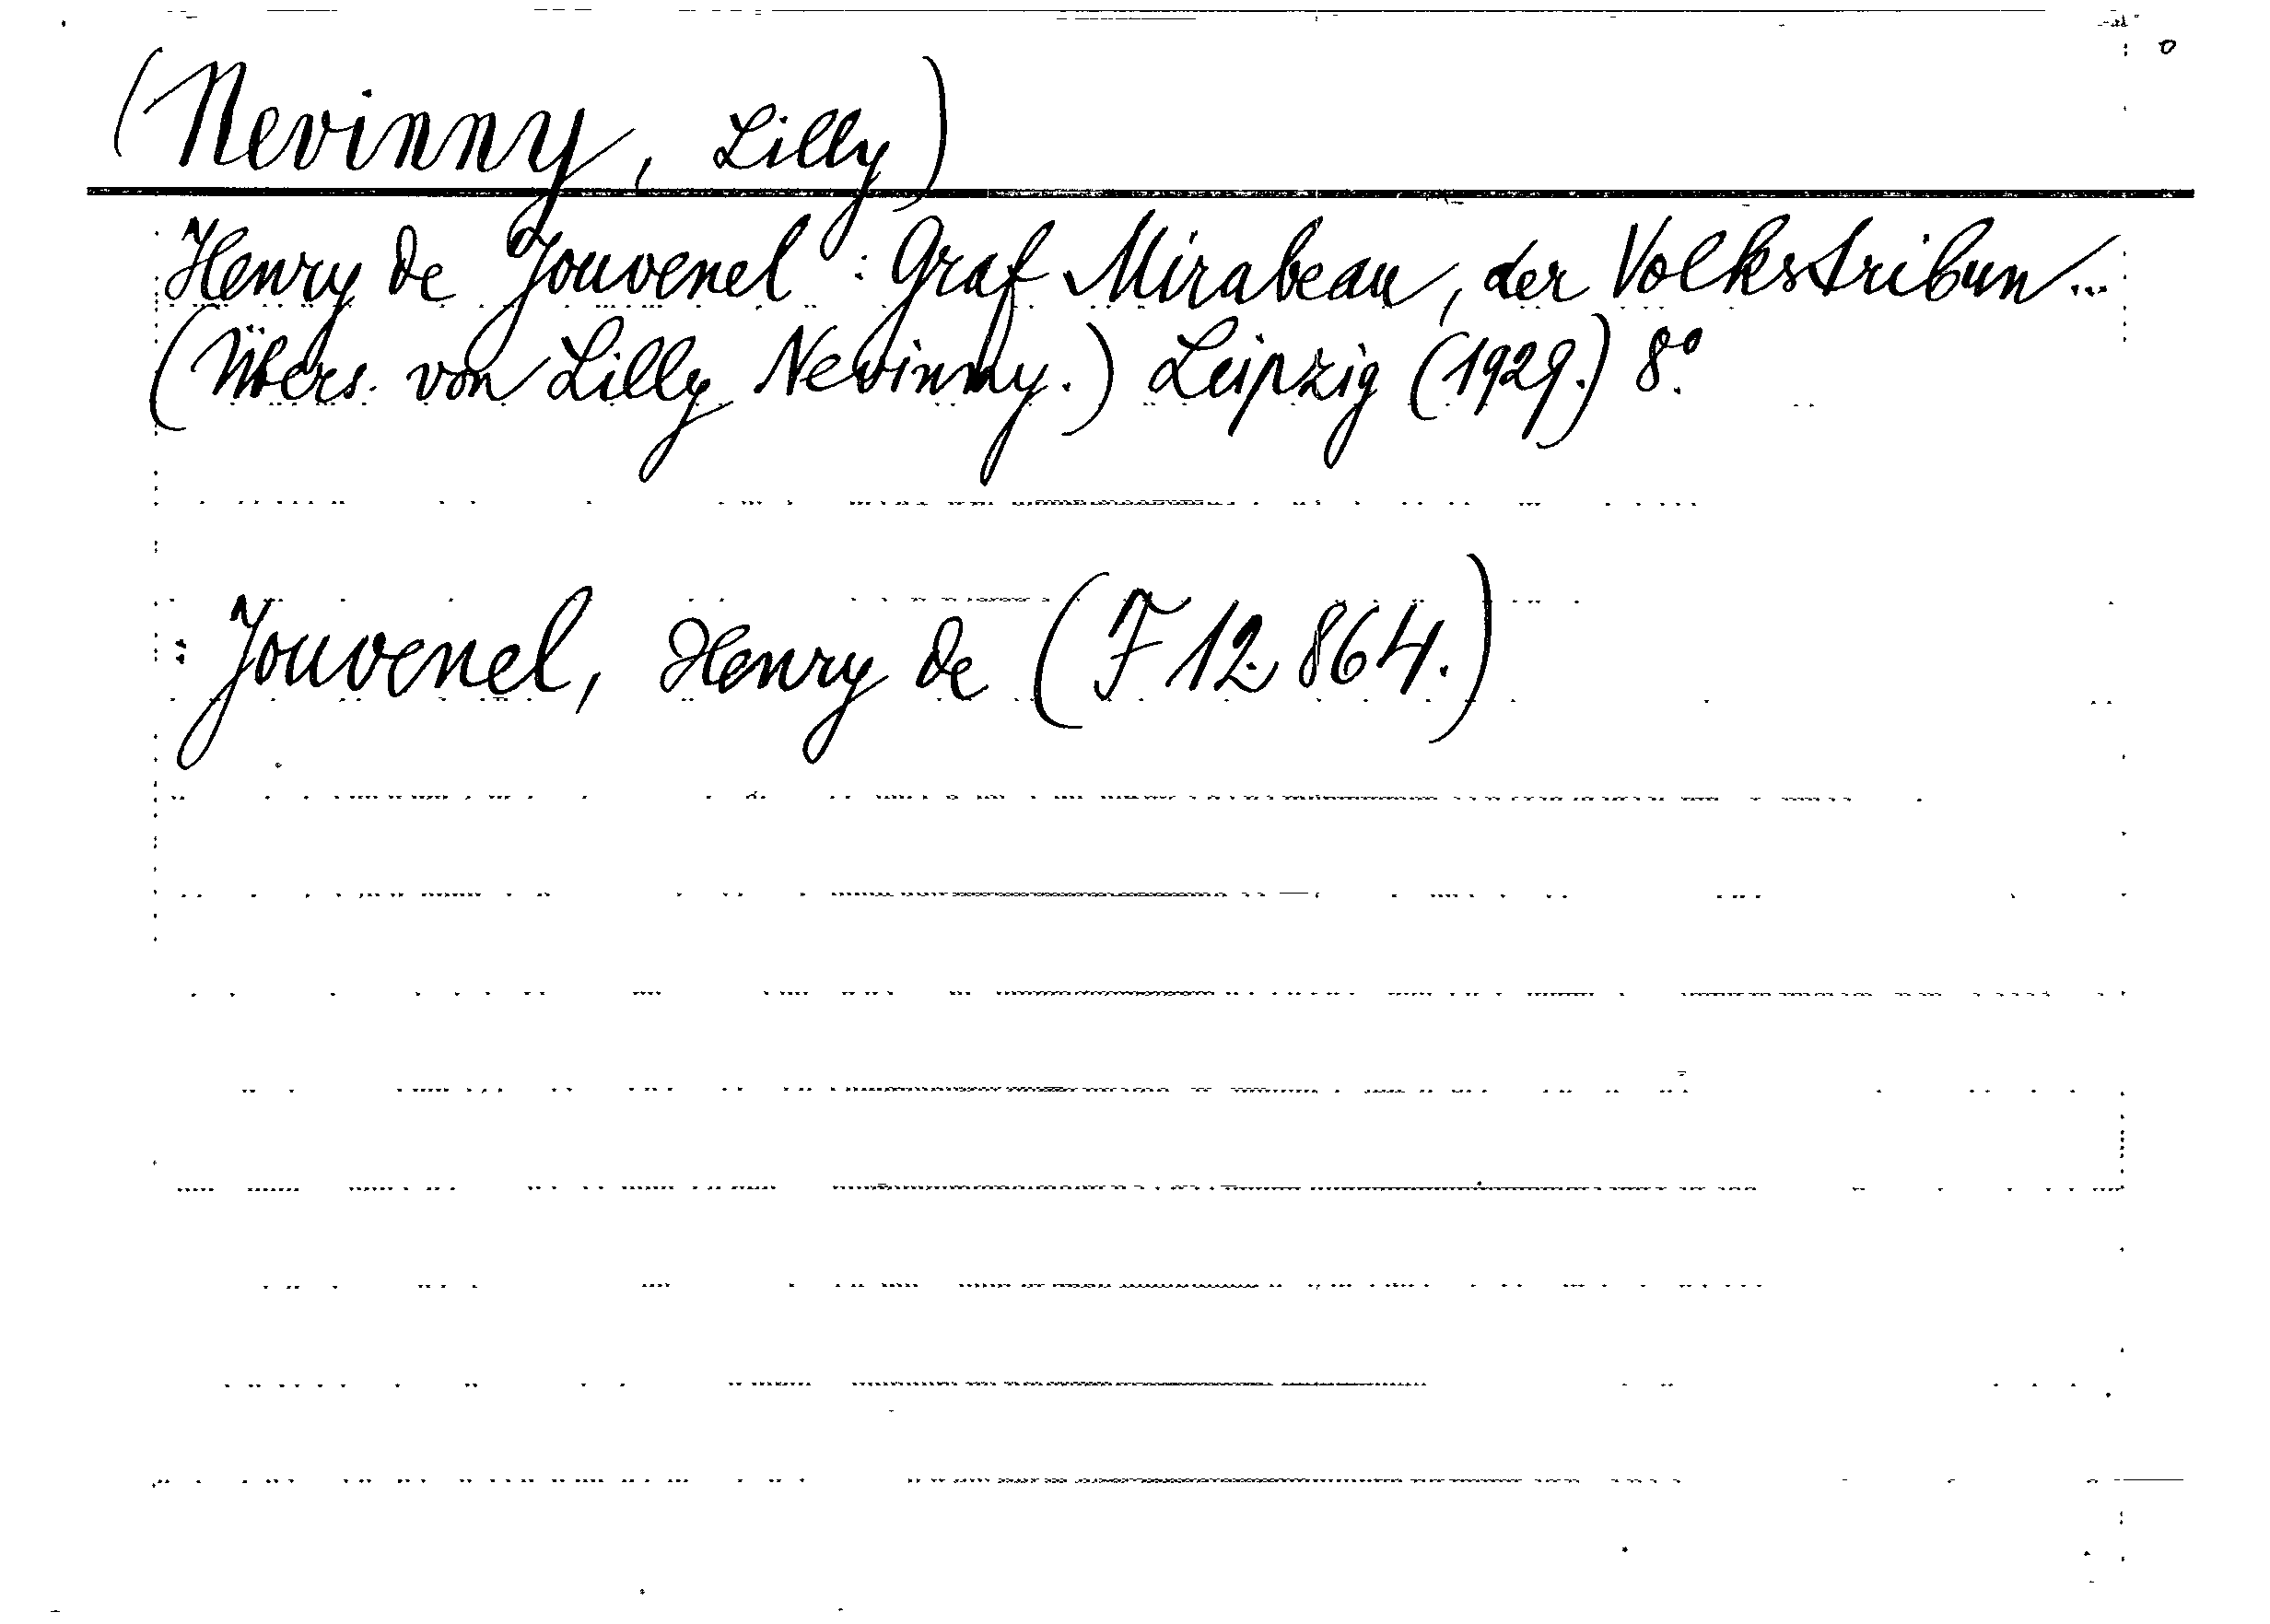 (Nevinny, Lilly)
Henry de Jouvenel: Graf Mirabeau, der Volkstribun...
(Übers. von Lilly Nevinny.) Leipzig (1929.) 8.º
: Jouvenel, Henry de (F 12.864.)